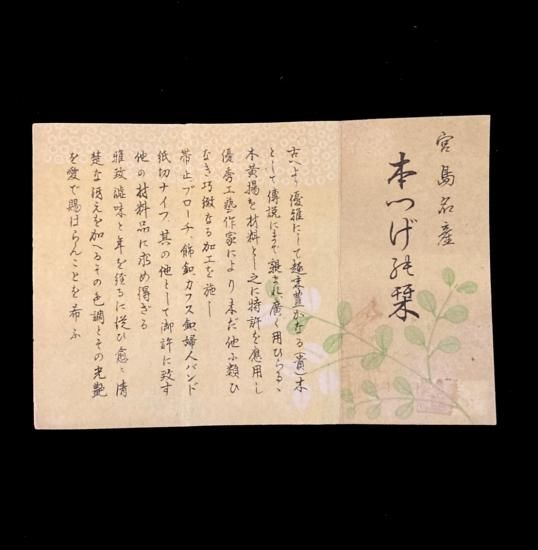 宮島名産
本つげ の栞
古へより優雅にして趣味豊かなる(貴)木
として傳説にまで親まれ、廣く用ひらるゝ
本黄楊を材料とし之に特許を應用し
優秀工藝作家により未だ他に類ひ
なき巧緻なる加工を施し
帯止ブローチ、飾釦カフス釦婦人バンド
紙切ナイフ、其の他として御許に致す
他の材料品に求め得ざる
雅致澁味と年を経るに従ひ愈〻清
楚な冴えを加へるその色調とその光艶
を愛で賜はらんことを希ふ